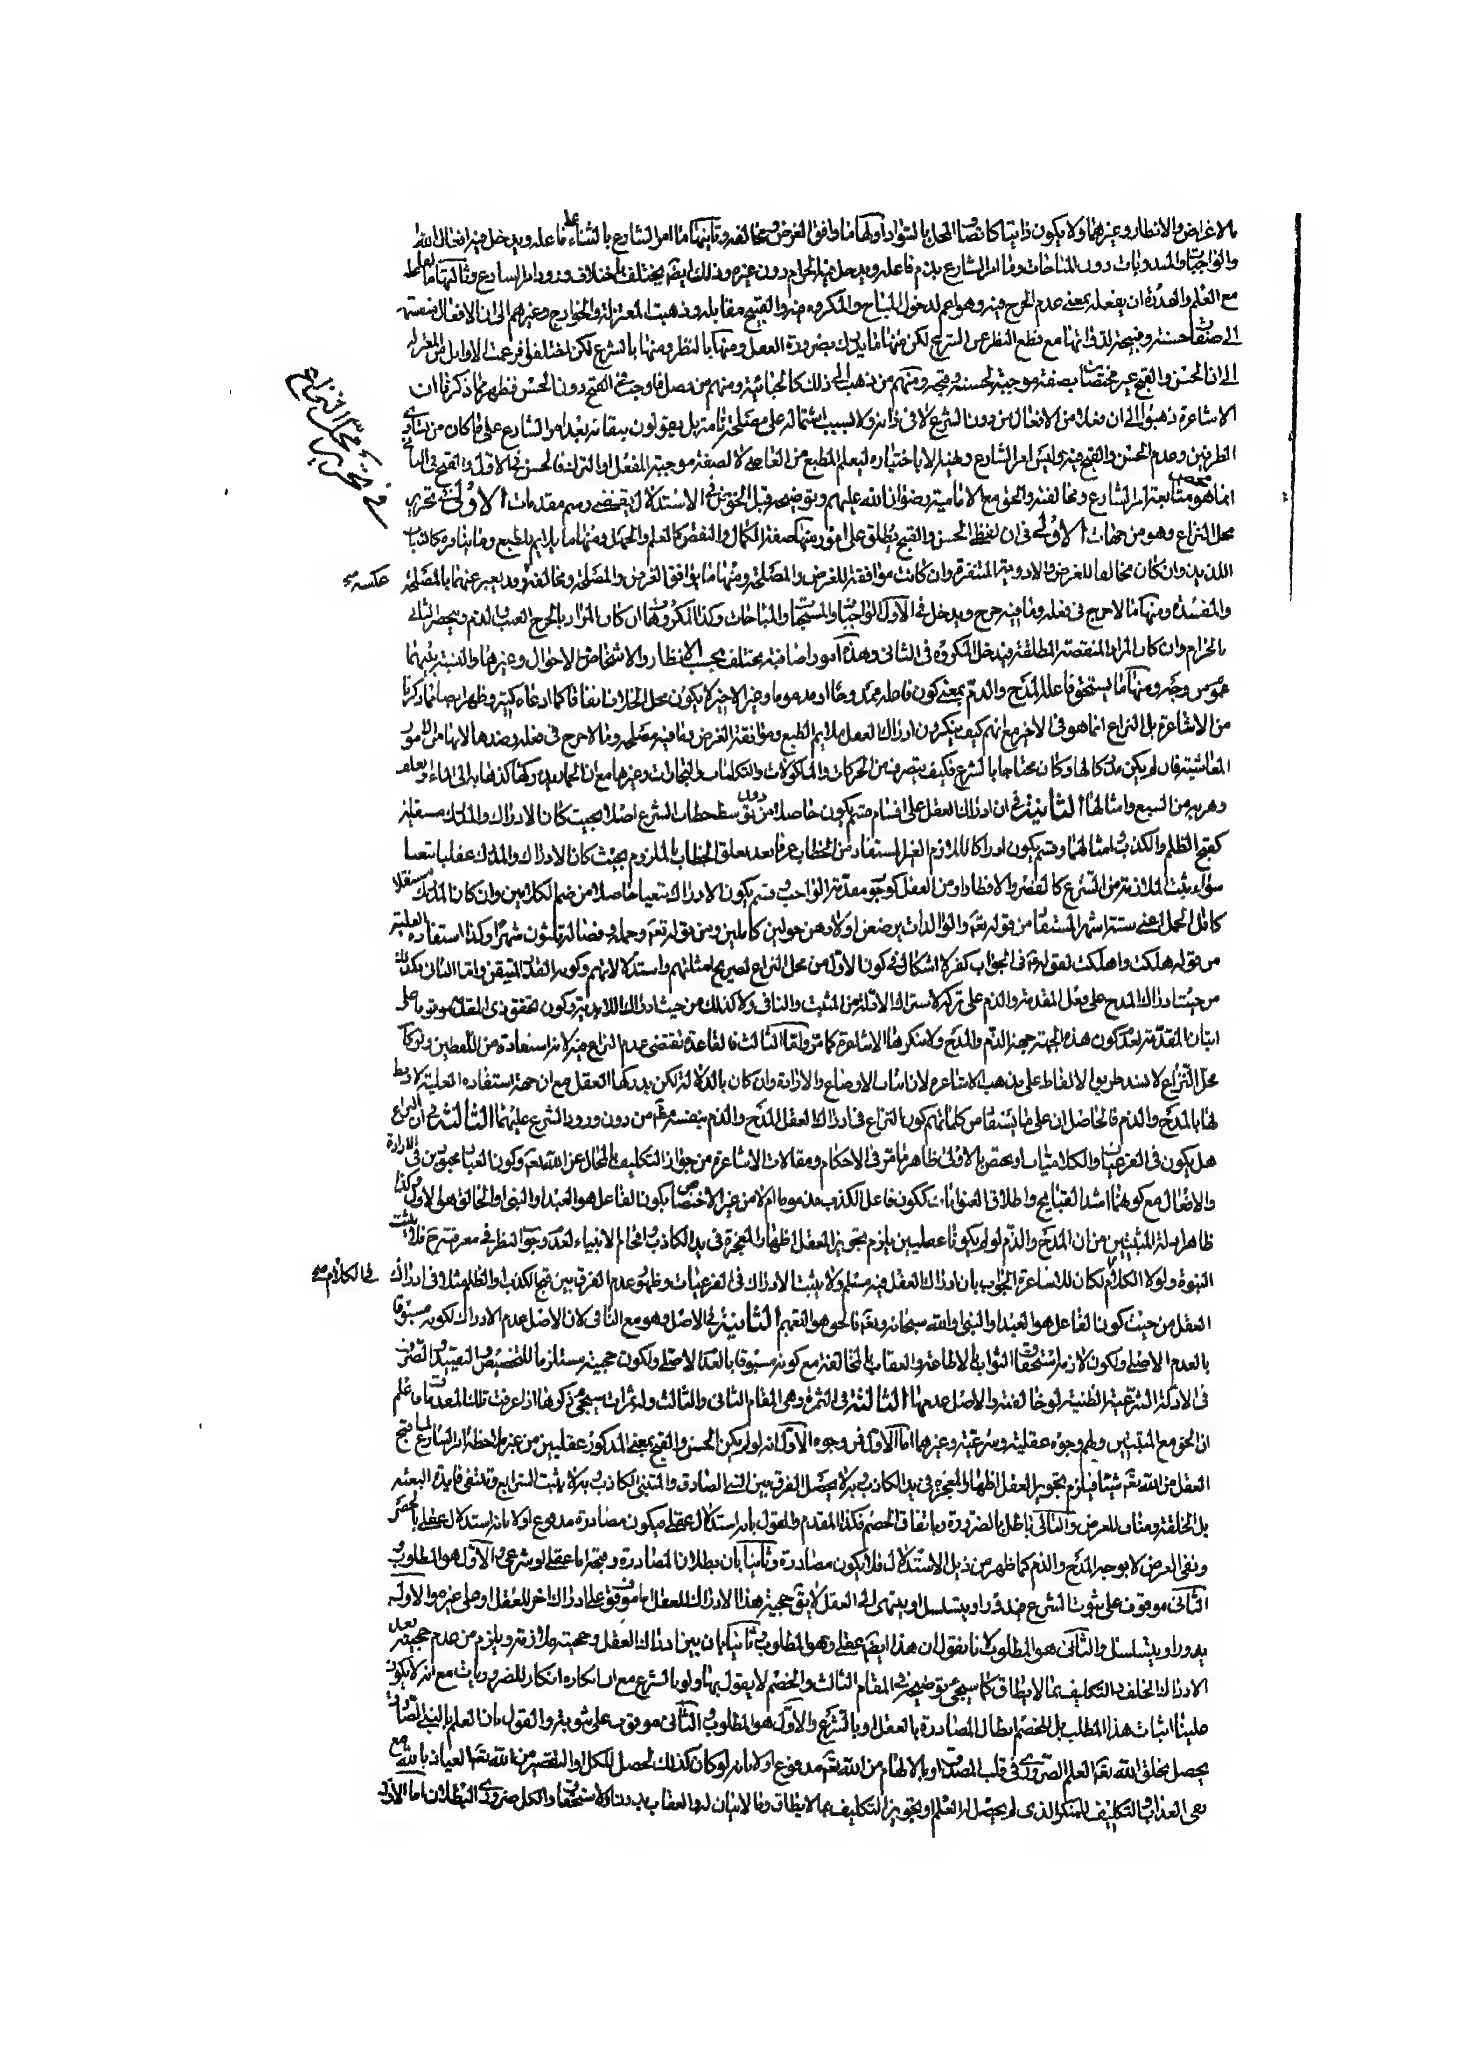 بالاغراض والانظار وغيرهما ولا يكون ذاتيا كاتصاف المحل بالسواد اولها ما وافق الغرض وما خالفه وثانيها ما امر الشارع بالثناء على فاعله ويدخل فيه افعال الله
والواجبات والمندوبات دون المباحات وما امر الشارع بذم فاعله ويدخل فيه الحرام دون غيره وذلك ايضا يختلف باختلاف ورود امر الشارع وثالثها ما لفاعله
مع العلم والقدرة ان يفعله بمعنى عدم الحرج فيه وهو اعم لدخول المباح والمكروه فيه والقبيح مقابله وذهبت المعتزلة والخوارج وغيرهم الى ان الافعال منقسمة
الى متصفات حسنة وقبيحة لذاتها مع قطع النظر عن الشرع لكن منها ما يدرك بضرورة العقل ومنها بالنظر ومنها بالشرع لكن اختلفوا فزعمت الاوايل من المعتزلة
الى ان الحسن والقبح غير مختصان بصفة موجبة لحسنه وقبحه ومنهم من ذهب الى ذلك كالجبائية ومنهم من فصل فاوجب في القبح دون الحسن فظهر مما ذكرنا ان
الاشاعرة ذهبوا الى ان فعلا من الافعال من دون الشرع لا في ذاته ولا بسبب اشتماله على مصلحة تامة بل يقولون ببقائه بعد امر الشارع على ما كان من تساوي
الطرفين وعدم الحسن والقبح فيه وليس امر الشارع ونهيه الا باختياره ليعلم المطيع من العاصي لا لصفة موجبة للفعل او الترك فالحسن في الاول والقبح في الثاني
انما هو محض متابعة امر الشارع ومخالفته والحق مع الامامية رضوان الله عليهم وتوضيحه قبل الخوض في الاستدلال يقتضي رسم مقدمات الاولى في تحرير
في تحرير محل النزاع
محل النزاع وهو من جهات الاولى في ان لفظي الحسن والقبح يطلق على امور منها صفة الكمال والنقص كالعلم والجهل ومنها ما يلايم الطبع وما ينافره كالذات
اللذيذ وان كان مخالفا للغرض والادوية المتنفرة وان كانت موافقة للغرض والمصلحة ومنها ما يوافق الغرض والمصلحة وما خالفه وقد يعبر عنهما بالمصلحة
عكسه صح
والمفسدة ومنها ما لا حرج في فعله وما فيه حرج ويدخل في الاول الواجبات والمستحبات والمباحات وكذا المكروهات ان كان المراد بالحرج العيب والذم ويحضر الثاني
بالحرام وان كان المراد المنقصة المطلقة فيدخل المكروه في الثاني وهذه امور اضافية يختلف بحسب الانظار والاشخاص والاحوال وغيرها والنسبة بينهما
عموم من وجه ومنها ما يستحق فاعله المدح والذم بمعنى كون فاعله ممدوحا او مذموما وغير الاخير لا يكون محل الخلاف اتفاقا كما ادعاه كثير وظهر ايضا مما ذكرنا
من الاشاعرة بل النزاع انما هو في الاخير مع انهم كيف ينكرون ادراك العقل ملايم الطبع وموافقة الغرض وما فيه مصلحة وما لا حرج في فعله وضدها لانها من الامور
المعاشية فان لم يكن مدركا لها وكان محتاجا بالشرع فكيف يتصرف بين الحركات والماكولات والتكلمات والتجارات وغيرها مع ان الحمار يدركها كذهابه الى الماء والعلف
وهربه من السبع وامثالها الثانية في ان ادراك العقل على اقسام قسم يكون حاصلا من دون توسط خطاب الشرع اصلا بحيث كان الادراك والمدرك مستقلة
كقبح الظلم والكذب وامثالهما وقسم يكون ادراكا للازم الغير المستفاد من الخطاب عرفا بعد تعلق الخطاب بالملزوم بحيث كان الادراك والمدرك عقليا تبعيا
سواء ثبت الملازمة من الشرع كالقصر والافطار او من العقل كوجوب مقدمة الواجب وقسم يكون الادراك تبعيا حاصلا من ضم الكلامين وان كان المدرك مستقلا
كاقل الحمل اعني ستة اشهر المستفاد من قوله تعالى والوالدات يرضعن اولادهن حولين كاملين ومن قوله تعالى وحمله وفصاله ثلثون شهرا وكذا استفادة العلية
من قوله هلكت واهلكت لقوله في الجواب كفر لا اشكال في كون الاول من محل النزاع لصريح امثلتهم واستدلالاتهم وكونه القدر المتيقن واما الثاني فكذلك
من حيث ادراك المدح على فعل المقدمة والذم على تركه لاشتراك الادلة من المثبت والنافي ولا كذلك من حيث ادراك اللابدية وكون تحقق ذي المقدمة موقوفا على
اتيان المقدمة لعدم كون هذه الجهة جهة الذم والمدح ولا ينكرها الاشاعرة كما مر واما الثالث فالقاعدة تقتضي عدم النزاع فيه لانه استفادة من اللفظين ولو كان
محل النزاع لانسد طريق الالفاظ على مذهب الاشاعرة لان اثبات الاوضاع والارادة وان كان بالدلالة لكن يدركها العقل مع ان جهة استفادة العلية لا ربط
لها بالمدح والذم فالحاصل ان على ما يستفاد من كلماتهم كون النزاع في ادراك العقل المدح والذم بنفسه من دون ورود الشرع عليهما الثالث في ان النزاع
هل يكون في الفرعيات والكلاميات او يختص بالاولى ظاهر ما مر في الاحكام ومقالات الاشاعرة من جواز التكليف بالمحال عن الله تعالى وكون العباد مجبورين في الارادة
والافعال مع كونهما اشد القبايح واطلاق العنوانات ككون فاعل الكذب مذموما ام لا من غير الاختصاص بكون الفاعل هو العبد او النبي او الخالق هو الاول وكذا
ظاهر ادلة المثبتين من ان المدح والذم لو لم يكونا عقليين يلزم تجويز العقل اظهار المعجزة في يد الكاذب وافحام الانبياء لعدم وجوب النظر في معرفته فلا يثبت
النبوة ولولا الكلام لكان للاشاعرة الجواب بان ادراك العقل فيه مسلم ولا يثبت الادراك في الفرعيات وظهور عدم الفرق بين قبح الكذب والظلم مثلا في ادراك
في الكلام صح
العقل من حيث كون الفاعل هو العبد او النبي او الله سبحانه وتعالى فالحق هو التعميم الثانية في الاصل وهو مع النافي لان الاصل عدم الادراك لكونه مسبوقا
بالعدم الاصلي ولكون لازمه استحقاق الثواب بالاطاعة والعقاب بالمخالفة مع كونه مسبوقا بالعدم الاصلي ولكون حجيته مستلزما للتخصيص والتقييد والتصرف
في الادلة الشرعية الظنية لو خالفته والاصل عدمها الثالثة في الثمرة وهي المقام الثاني والثالث وله ثمرات سيجئ ذكرها اذا عرفت تلك المقدمات فاعلم
ان الحق مع المثبتين ولهم وجوه عقلية وشرعية وغيرهما اما الاول فمن وجوه الاول انه لو لم يكن الحسن والقبح بمعنى المذكور عقليين من غير ملاحظة امر الشارع لما قبح
العقل من الله تعالى شيئا فيلزم تجويز العقل اظهار المعجزة في يد الكاذب فلا يحصل الفرق بين النبي الصادق والمتنبي الكاذب فلا يثبت الشرايع وتنتفي فايدة البعثة
بل الخلقة ومناف للغرض والتالي باطل بالضرورة وباتفاق الخصم فكذا المقدم والقول بانه استدلال عقلي فيكون مصادرة مدفوع اولا بانه استدلال عقلي بالحضر
ونفي الغرض لا بوجه المدح والذم كما ظهر من ذيل الاستدلال فلا يكون مصادرة وثانيا بان بطلان المصادرة وقبحه اما عقلي او شرعي والاول هو المطلوب
الثاني موقوف على ثبوت الشرع فيدور او يتسلسل او ينتهي الى العقل لا يق حجية هذا الادراك للعقل اما موقوف على ادراك اخر للعقل او على غيره والاول
يدور او يتسلسل والثاني هو المطلوب لانا نقول ان هذا ايضا عقلي وهو المطلوب وثانيا بان بين ادراك العقل وحجيته ملازمة ويلزم من عدم حجيته بعد
الادراك الخلف والتكليف بما لا يطاق كما سيجئ توضيحه في المقام الثالث والخصم لا يقول بها ولو بالشرع مع ان انكاره انكار للضروريات مع انه لا يكون
علينا اثبات هذا المطلب بل الخصم ابطال المصادرة بالعقل او بالشرع والاول هو المطلوب والثاني موقوف على ثبوته والقول بان العلم بالنبي الصادق
يحصل بخلق الله تعالى العلم الضروري في قلب المصدق او بالالهام من الله تعالى مدفوع اولا بانه لو كان كذلك لحصل للكل او التقصير من الله تعالى العياذ بالله مع
نفي العذاب والتكليف للمنكر الذي لم يحصل له العلم او تجويز التكليف بما لا يطاق وما لا بيان له والعقاب بدون الاستحقاق والكل ضروري البطلان اما الاول